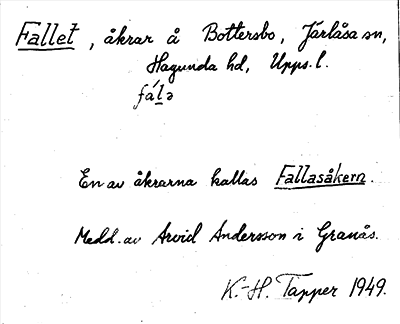 Fallet, åkrar å Bottersbo, Järlåsa sn,
Hagunda hd, Upps. l.
fálə
En av åkrarna kallas Fallasåkern.
Medd. av Arvid Andersson i Granås.
K.-H. Tapper 1949.